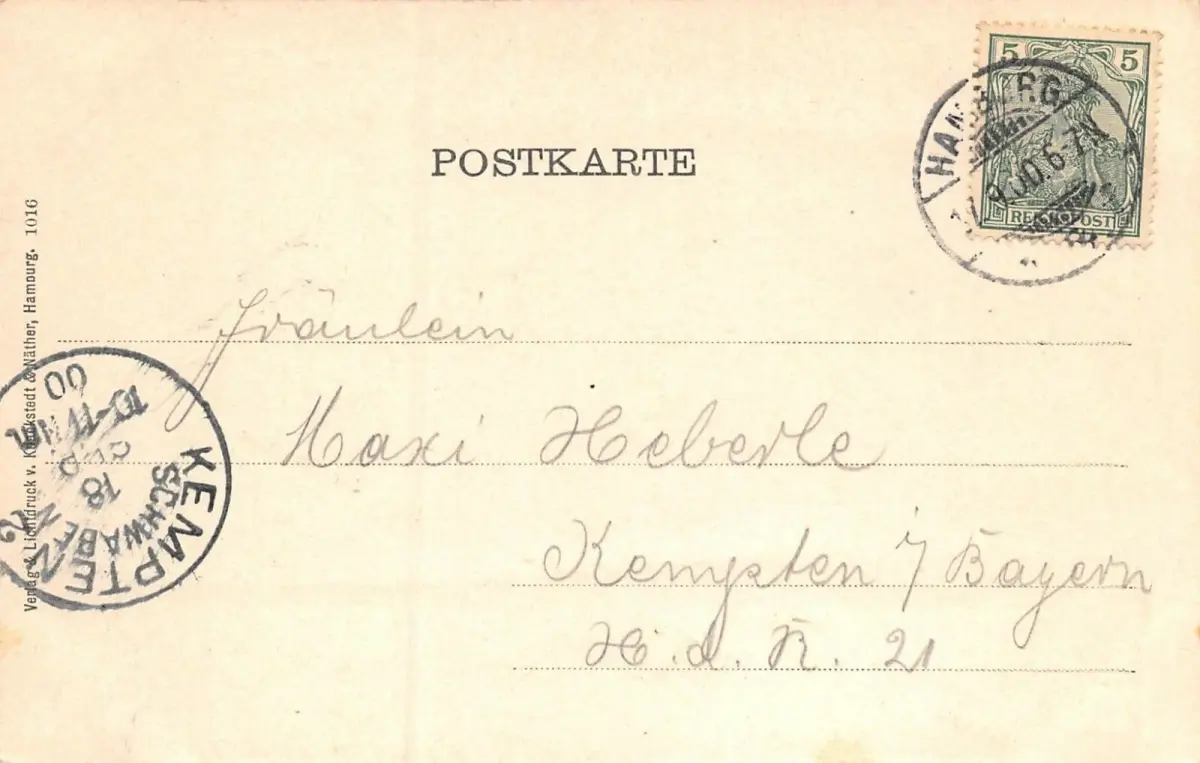 5 5
HAMBURG
9.00.6-7N.
REICHSPOST
POSTKARTE
Fräulein
Maxi Heberle
Kempten i/ Bayern
H. d. R. 21
KEMPTEN 2
SCHWABEN
18
SEP
10-11
00
Verlag & Lichtdruck v. Knackstedt & Näther, Hamburg. 1016